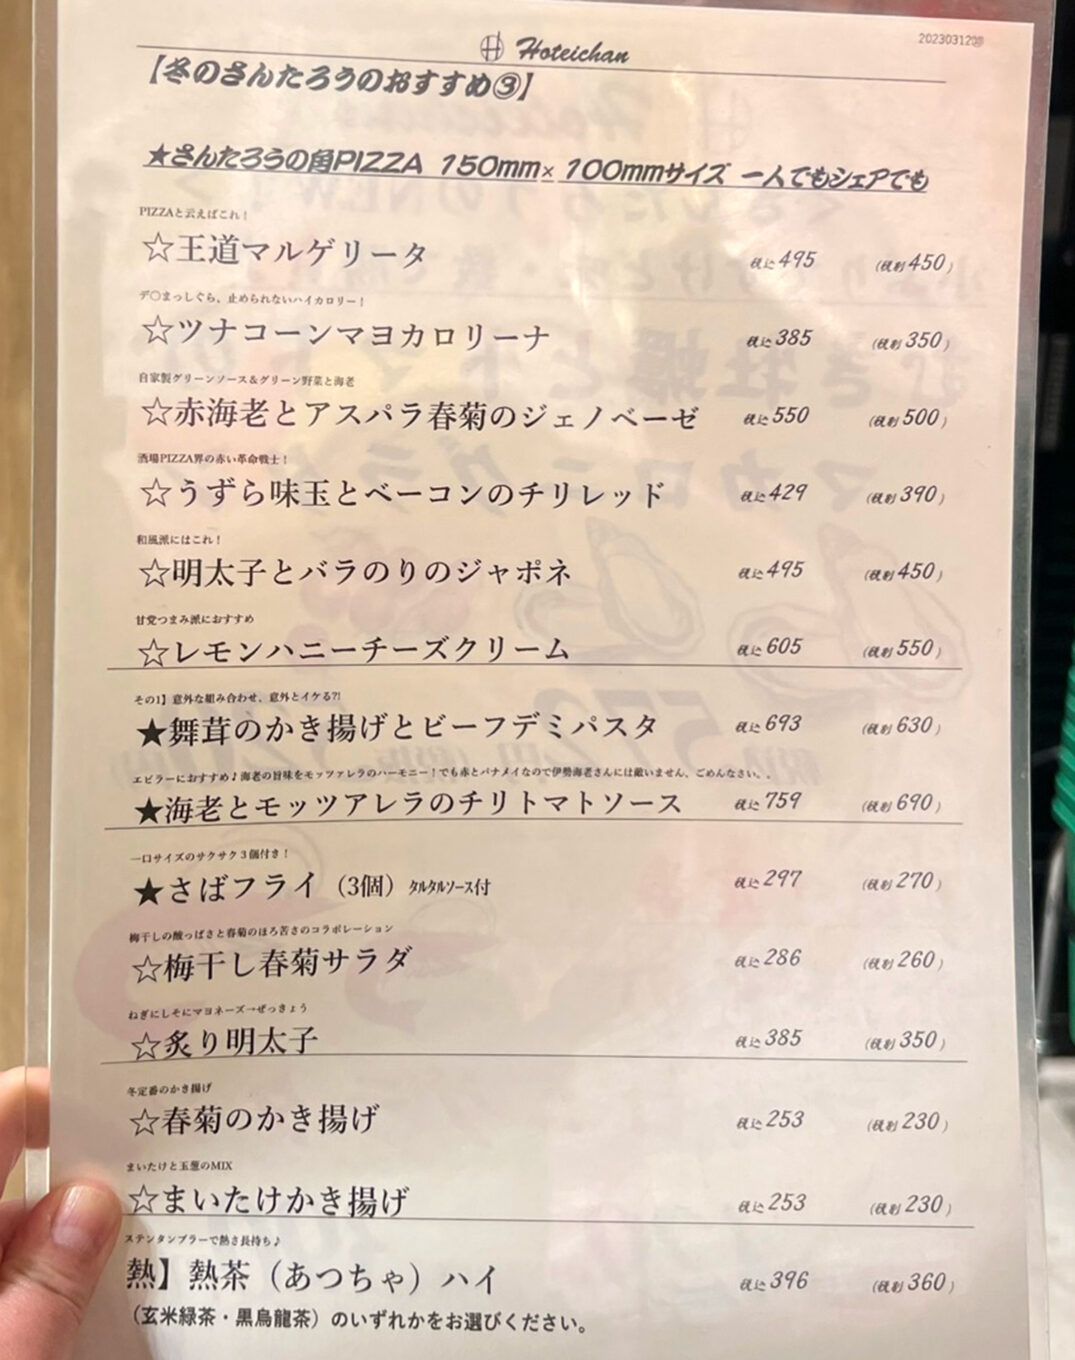 Hoteichan
20230312㊐
【冬のさんたろうのおすすめ③】
★さんたろうの角PIZZA 150mm×100mmサイズ 一人でもシェアでも
PIZZAと云えばこれ！
☆王道マルゲリータ 税込495 （税別450）
デ〇まっしぐら、止められないハイカロリー！
☆ツナコーンマヨカロリーナ 税込385 （税別350）
自家製グリーンソース＆グリーン野菜と海老
☆赤海老とアスパラ春菊のジェノベーゼ 税込550 （税別500）
酒場PIZZA界の赤い革命戦士！
☆うずら味玉とベーコンのチリレッド 税込429 （税別390）
和風派にはこれ！
☆明太子とバラのりのジャポネ 税込495 （税別450）
甘党つまみ派におすすめ
☆レモンハニーチーズクリーム 税込605 （税別550）
その1】意外な組み合わせ、意外とイケる?!
★舞茸のかき揚げとビーフデミパスタ 税込693 （税別630）
エビラーにおすすめ♪海老の旨味をモッツァレラのハーモニー！でも赤とバナメイなので伊勢海老さんには敵いません、ごめんなさい。。
★海老とモッツアレラのチリトマトソース 税込759 （税別690）
一口サイズのサクサク３個付き！
★さばフライ（3個）タルタルソース付 税込297 （税別270）
梅干しの酸っぱさと春菊のほろ苦さのコラボレーション
☆梅干し春菊サラダ 税込286 （税別260）
ねぎにしそにマヨネーズ→ぜっきょう
☆炙り明太子 税込385 （税別350）
冬定番のかき揚げ
☆春菊のかき揚げ 税込253 （税別230）
まいたけと玉葱のMIX
☆まいたけかき揚げ 税込253 （税別230）
ステンタンブラーで熱さ長持ち♪
熱】熱茶（あつちゃ）ハイ 税込396 （税別360）
（玄米緑茶・黒烏龍茶）のいずれかをお選びください。